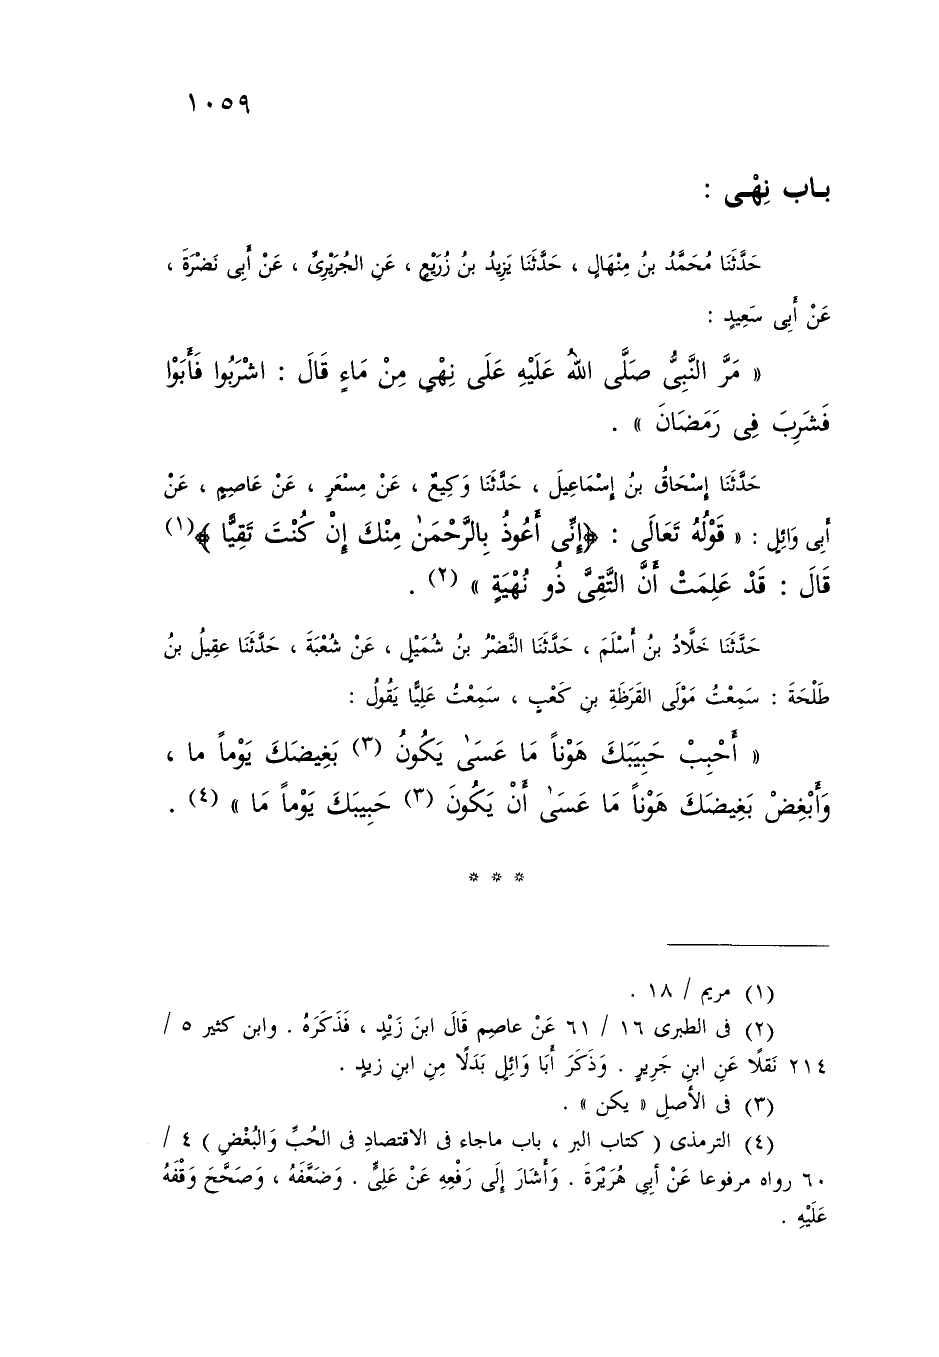 ١٠٥٩
بـاب نِهْـى :
حَدَّثَنَا مُحَمَّدُ بنُ مِنْهَالٍ ، حَدَّثَنَا يَزِيدُ بنُ زُرَيْعٍ ، عَنِ الجُرَيْرِىِّ ، عَنْ أَبِى نَضْرَةَ ،
عَنْ أَبِى سَعِيدٍ :
« مَرَّ النَّبِىُّ صَلَّى اللهُ عَلَيْهِ عَلَى نِهْىٍ مِنْ مَاءٍ قَالَ : اشْرَبُوا فَأَبَوْا
فَشَرِبَ فِى رَمَضَانَ » .
حَدَّثَنَا إِسْحَاقُ بنُ إِسْمَاعِيلَ ، حَدَّثَنَا وَكِيعٌ ، عَنْ مِسْعَرٍ ، عَنْ عَاصِمٍ ، عَنْ
أَبِى وَائِلٍ : « قَوْلُهُ تَعَالَى : ﴿إِنِّى أَعُوذُ بِالرَّحْمَنٰ مِنْكَ إِنْ كُنْتَ تَقِيًّا ﴾(١)
قَالَ : قَدْ عَلِمَتْ أَنَّ التَّقِىَّ ذُو نُهْيَةٍ » (٢) .
حَدَّثَنَا خَلَّادُ بنُ أَسْلَمَ ، حَدَّثَنَا النَّضْرُ بنُ شُمَيْلٍ ، عَنْ شُعْبَةَ ، حَدَّثَنَا عقِيلُ بنُ
طَلْحَةَ : سَمِعْتُ مَوْلَى القَرَظَةِ بنِ كَعْبٍ ، سَمِعْتُ عَلِيًّا يَقُولُ :
« أَحْبِبْ حَبِيَبَكَ هَوْناً مَا عَسَىٰ يَكُونُ (٣) بَغِيضَكَ يَوْماً ما ،
وَأَبْغِضْ بَغِيضَكَ هَوْناً مَا عَسَىٰ أَنْ يَكُونَ (٣) حَبِيبَكَ يَوْماً مَا » (٤) .
* * *
(١) مريم / ١٨ .
(٢) فى الطبرى ١٦ / ٦١ عَنْ عاصِم قَالَ ابنَ زَيْدٍ ، فَذَكَرَهُ . وابن كثير ٥ /
٢١٤ نَقلًا عَنِ ابنِ جَرِيرٍ . وَذَكَرَ أَبَا وَائِلٍ بَدَلًا مِنِ ابنِ زيدٍ .
(٣) فى الأصلِ « يكن » .
(٤) الترمذى ( كتاب البر ، باب ماجاء فى الاقتصادِ فى الحُبِّ وَالبُغْضِ ) ٤ /
٦٠ رواه مرفوعا عَنْ أبِي هُرَيْرَةَ . وَأَشَارَ إِلَى رَفْعِهِ عَنْ عَلِىٍّ . وَضَعَّفَهُ ، وَصَحَّحَ وَقْفَهُ
عَلَيْهِ .